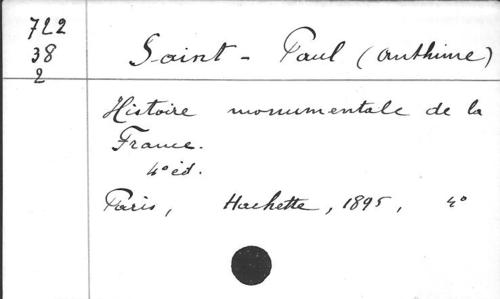 722
38
2
Saint-Paul (Anthime)
Histoire monumentale de la
France.
4° éd.
Paris, Hachette, 1895, 4°